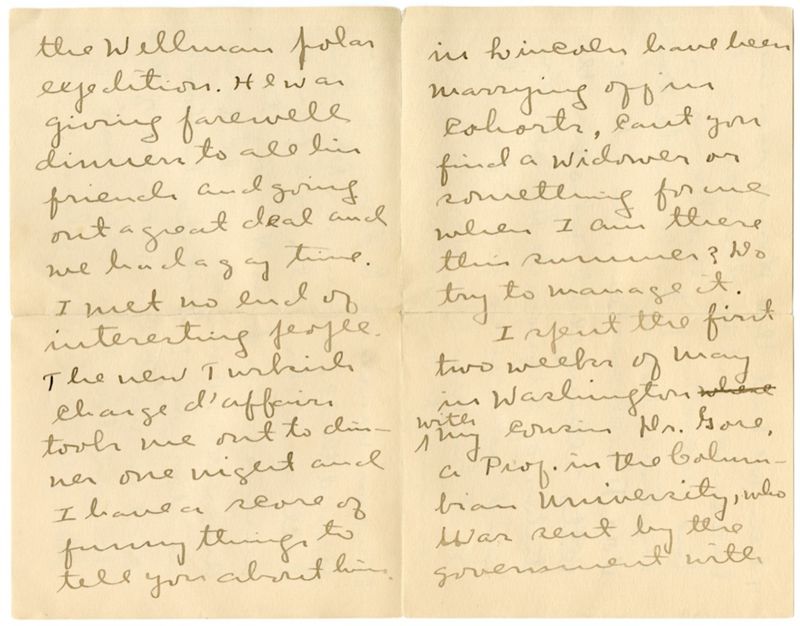 the Wellman polar
expedition. He was
giving farewell
dinners to all his
friends and going
out a great deal and
we had a gay time.
I met no end of
interesting people.
The new Turkish
charge d'affairs
took me out to din-
ner one night and
I have a score of
funny things to
tell you about him.
in Lincoln have been
marrying off in
cohorts, cant you
find a widower or
something for me
when I am there
this summer? Do
try to manage it.
I spent the first
two weeks of May
in Washington where
with
my cousin Dr. Gore,
a Prof. in the Colum-
bian University, who
was sent by the
government with